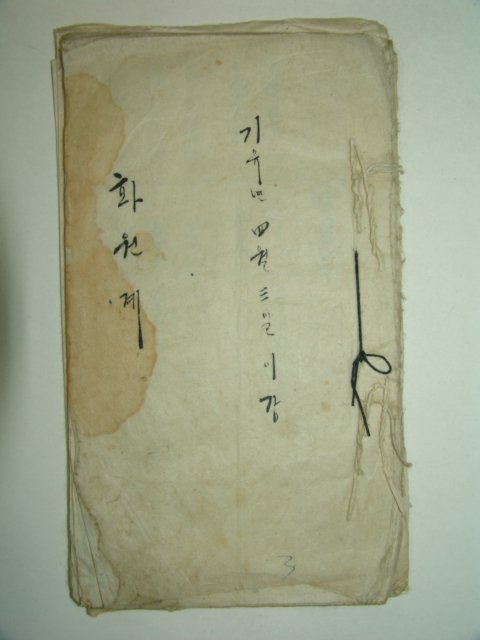 기유년 四월 三일 이강
화원계
3